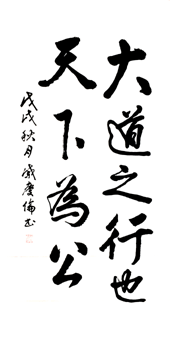 大道之行也
天下為公
戊戌秋月戚慶倫書